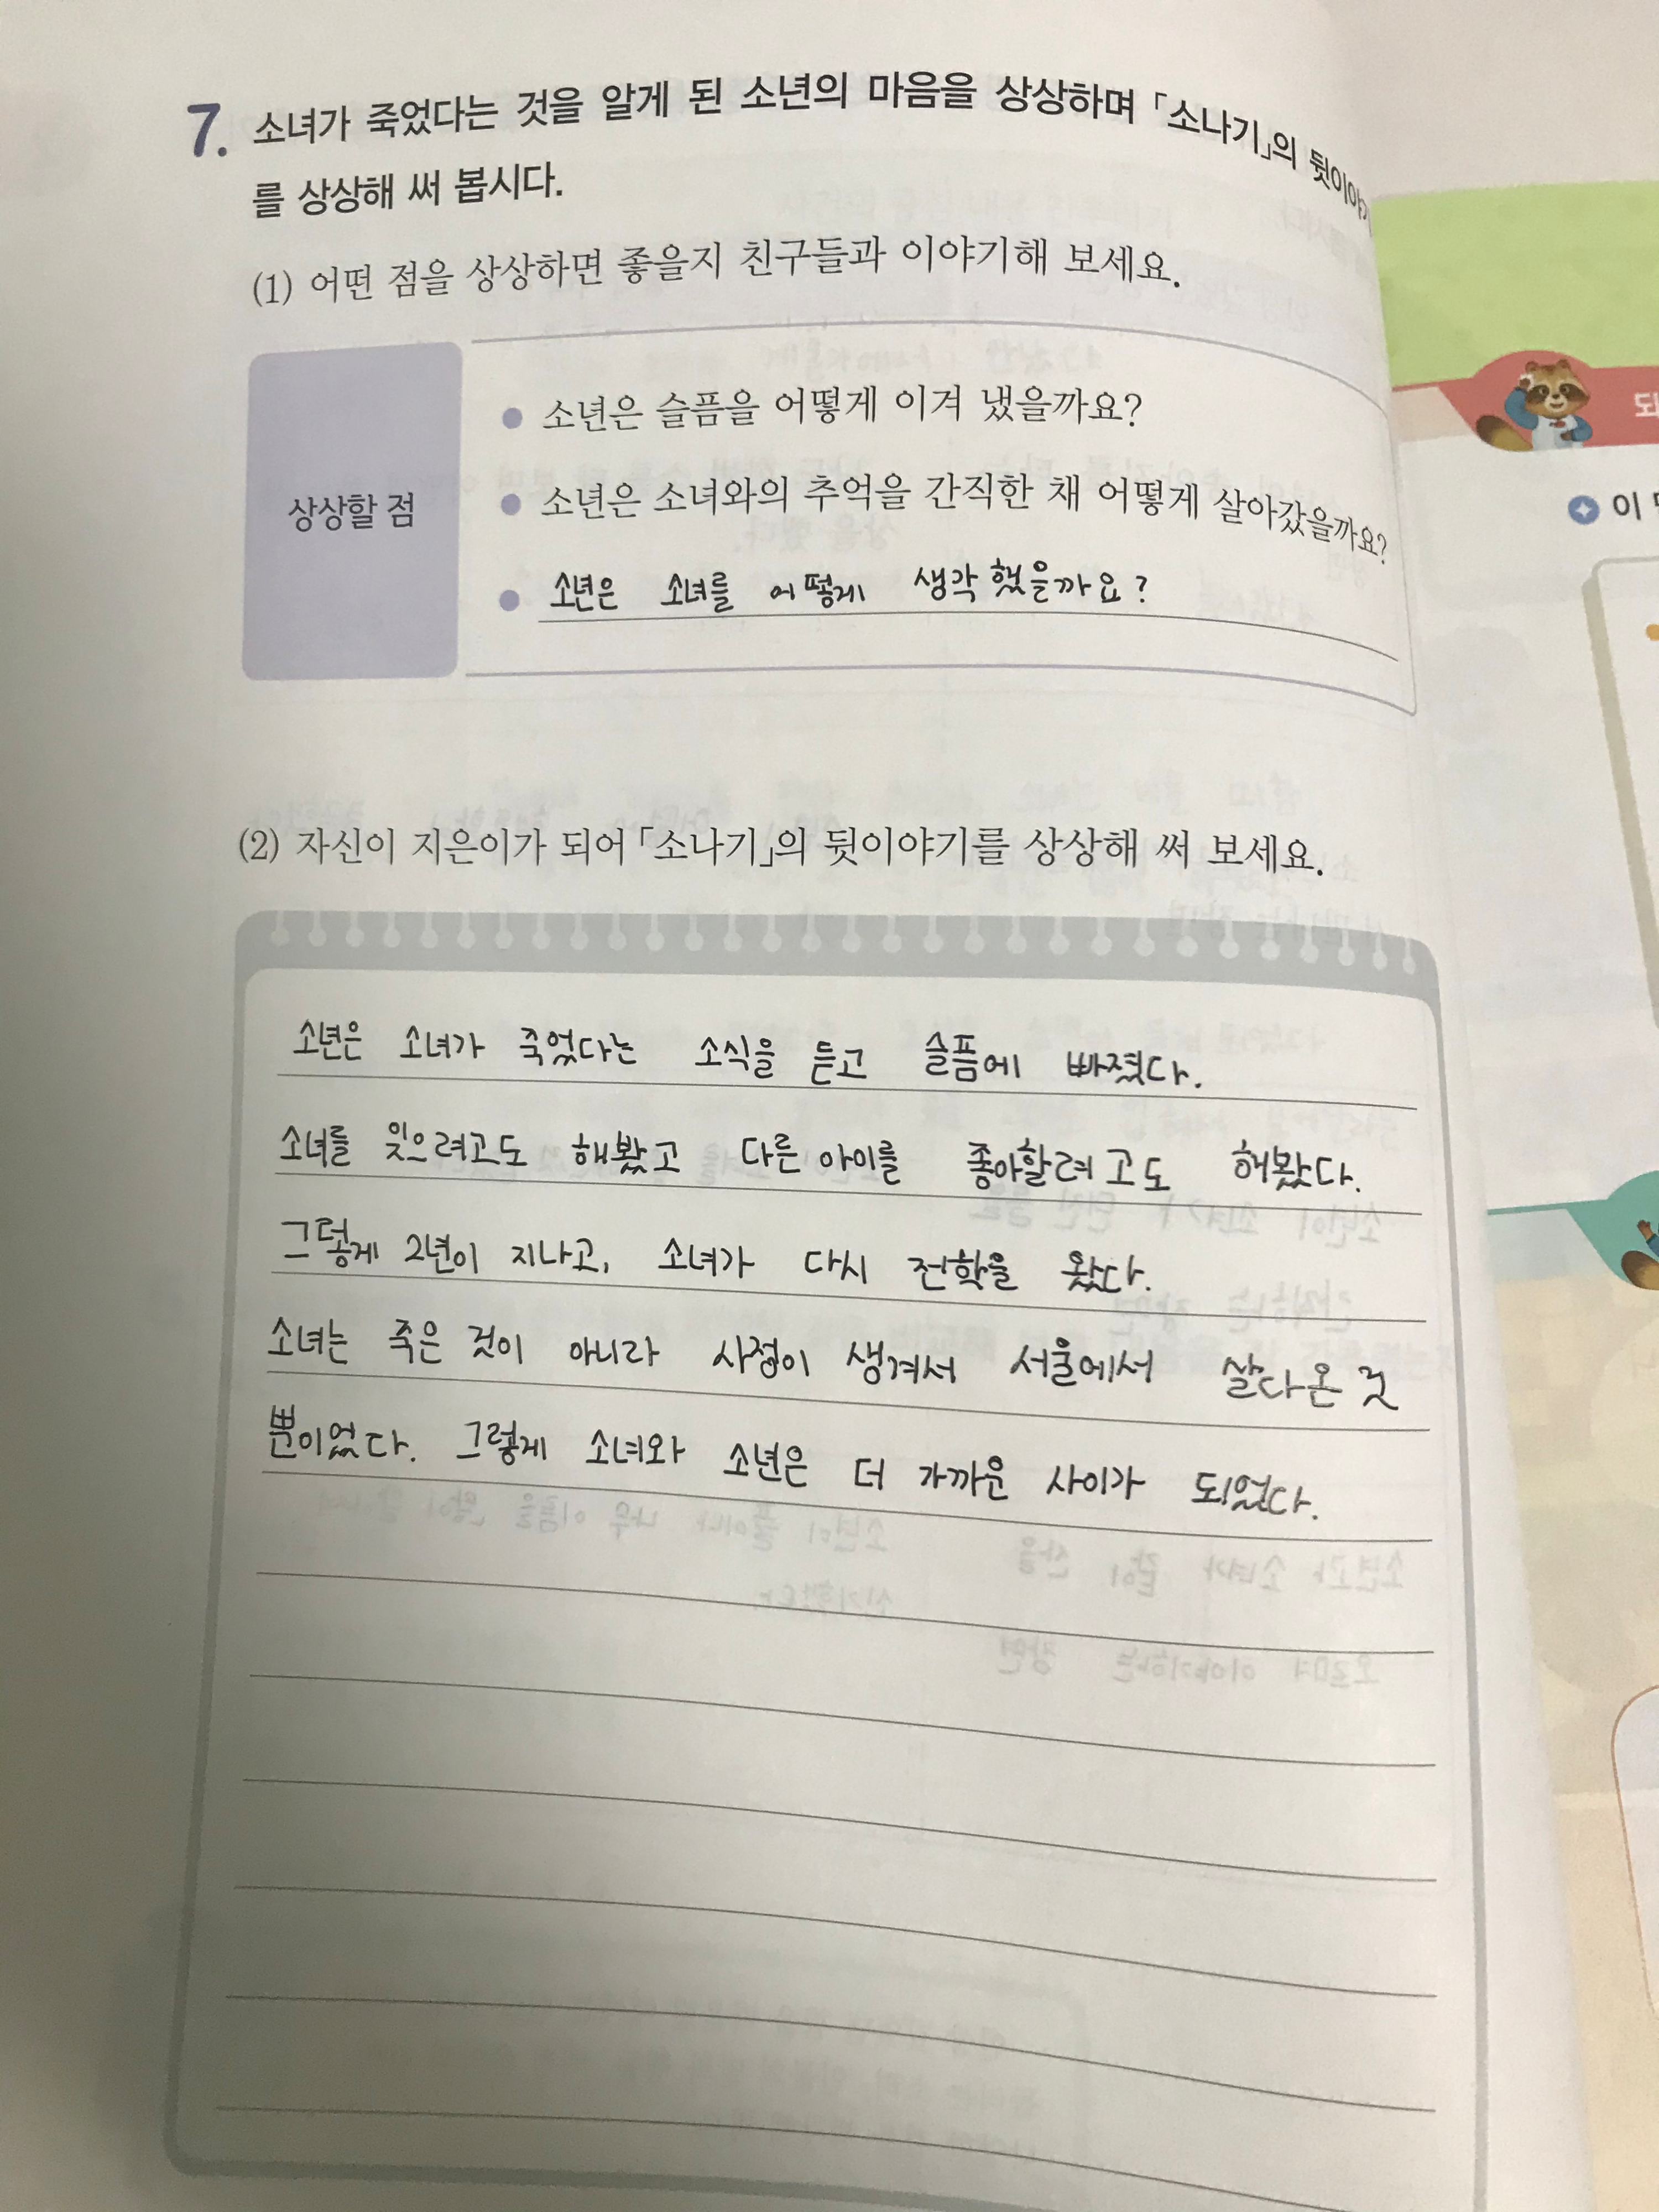 7. 소녀가 죽었다는 것을 알게 된 소년의 마음을 상상하며 「소나기」의 뒷이야기
를 상상해 써 봅시다.
(1) 어떤 점을 상상하면 좋을지 친구들과 이야기해 보세요.
상상할 점
소년은 슬픔을 어떻게 이겨 냈을까요?
소년은 소녀와의 추억을 간직한 채 어떻게 살아갔을까요?
소년은 소녀를 어떻게 생각 했을까요?
(2) 자신이 지은이가 되어 「소나기」의 뒷이야기를 상상해 써 보세요.
소년은 소녀가 죽었다는 소식을 듣고 슬픔에 빠졌다.
소녀를 잊으려고도 해봤고 다른 아이를 좋아할려고도 해봤다.
그렇게 2년이 지나고, 소녀가 다시 전학을 왔다.
소녀는 죽은 것이 아니라 사정이 생겨서 서울에서 살다온 것
뿐이었다. 그렇게 소녀와 소년은 더 가까운 사이가 되었다.
이